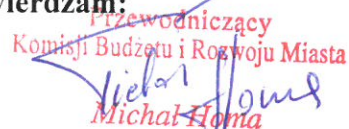 wierdzam:
Przewodniczący
Komisji Budżetu i Rozwoju Miasta
Michał Homa
Michał Homa